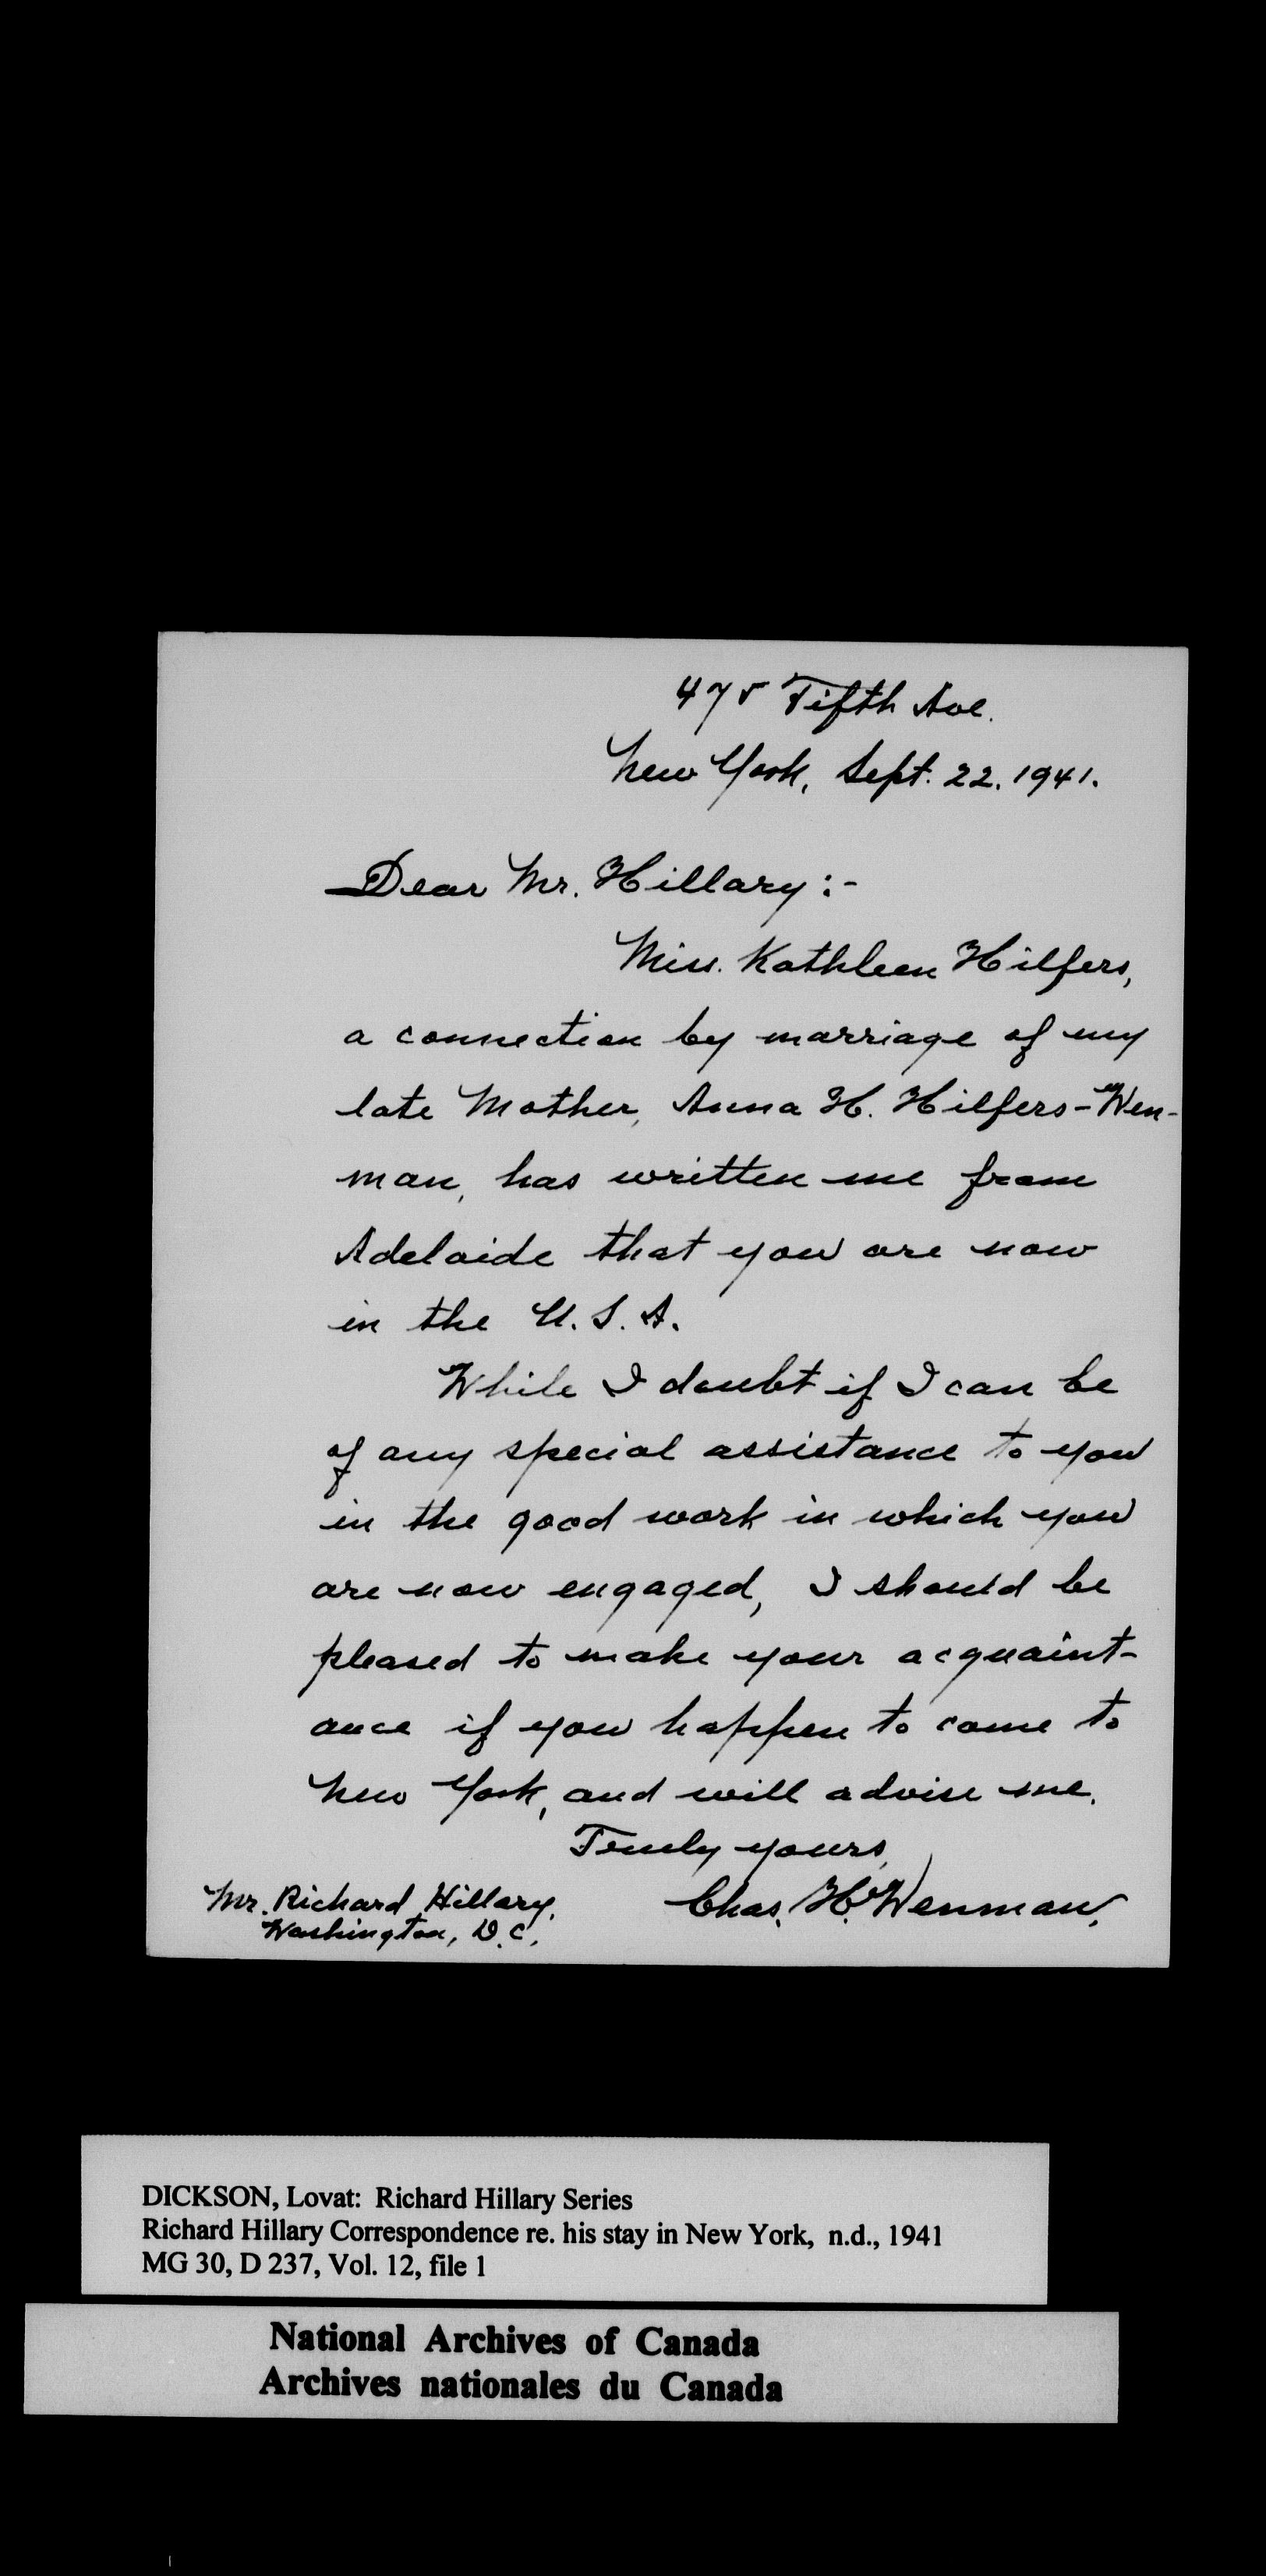 475 Fifth Ave.
New York, Sept. 22. 1941.
Dear Mr. Hillary:-
Miss. Kathleen Hilfers,
a connection by marriage of my
late Mother, Anna H. Hilfers-Wen-
man, has written me from
Adelaide that you are now
in the U.S.A.
While I doubt if I can be
of any special assistance to you
in the good work in which you
are now engaged, I should be
pleased to make your acquaint-
ance if you happen to come to
New York, and will advise me.
Truly yours,
Chas. H. Wenman,
Mr. Richard Hillary,
Washington, D.C.
DICKSON, Lovat: Richard Hillary Series
Richard Hillary Correspondence re. his stay in New York, n.d., 1941
MG 30, D 237, Vol. 12, file 1
National Archives of Canada
Archives nationales du Canada